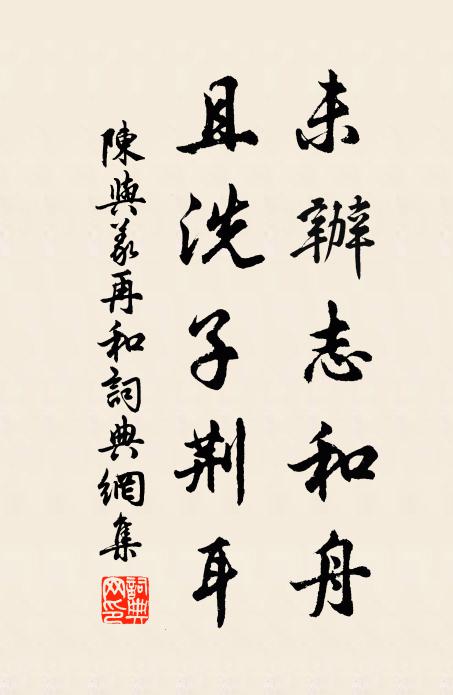 未辦志和舟
且洗子荆耳
陳與義再和詞典網集
詞典網印